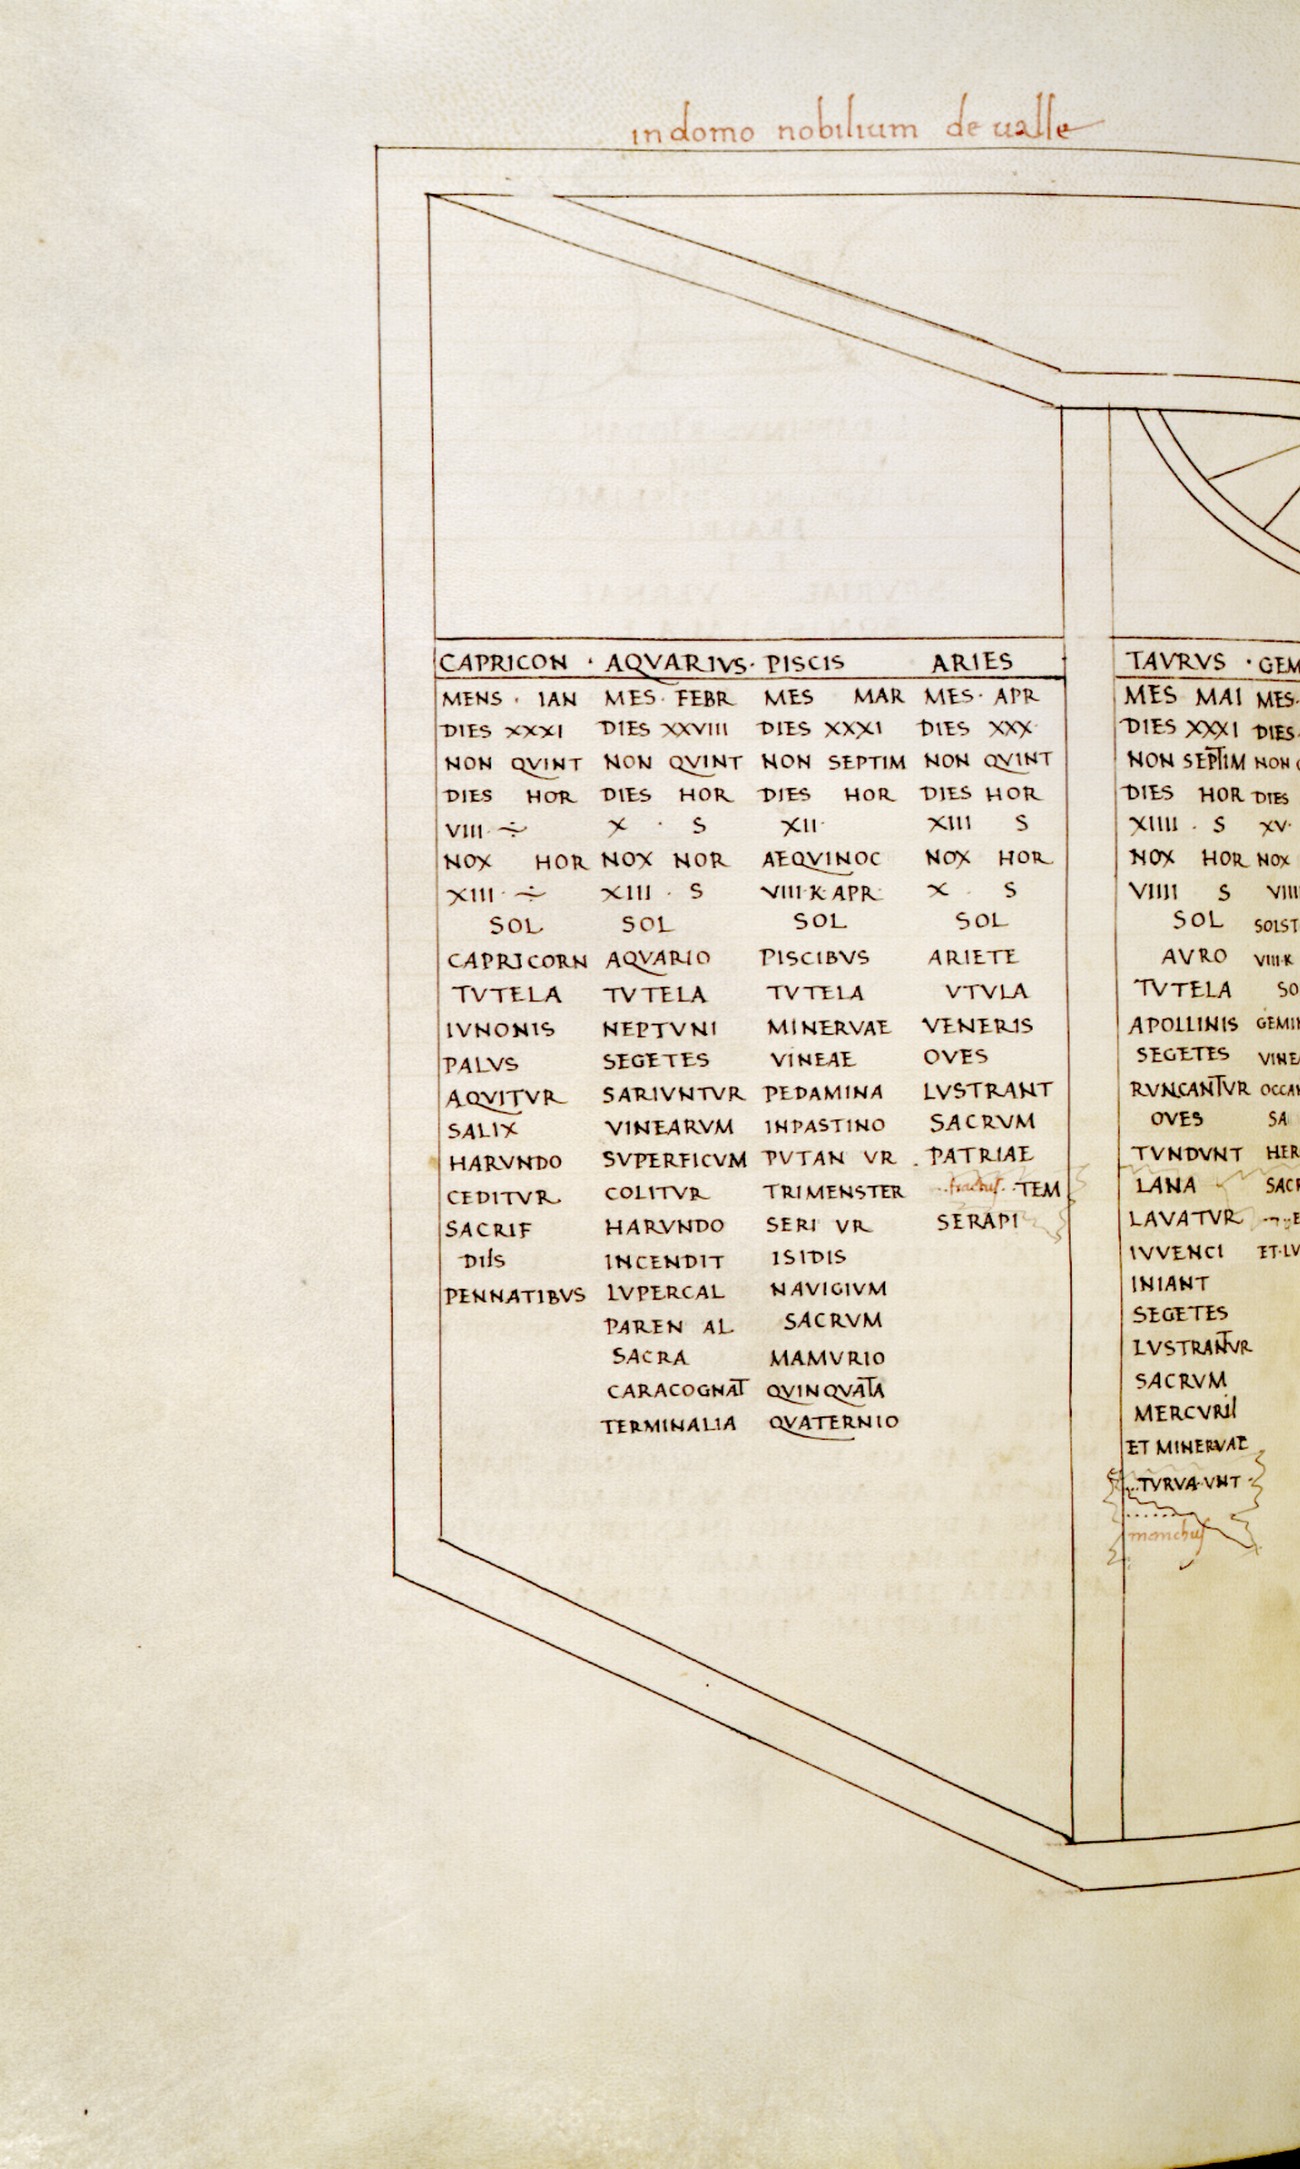 in domo nobilium de ualle
CAPRICON ·
MENS · IAN
DIES XXXI
NON QVINT
DIES HOR
VIII ÷
NOX HOR
XIII ÷
SOL
CAPRICORN
TVTELA
IVNONIS
PALVS
AQVITVR
SALIX
HARVNDO
CEDITVR
SACRIF
DIIS
PENNATIBVS
AQVARIVS ·
MES · FEBR
DIES XXVIII
NON QVINT
DIES HOR
X · S
NOX NOR
XIII · S
SOL
AQVARIO
TVTELA
NEPTVNI
SEGETES
SARIVNTVR
VINEARVM
SVPERFICVM
COLITVR
HARVNDO
INCENDIT
LVPERCAL
PAREN AL
SACRA
CARACOGNAT
TERMINALIA
PISCIS
MES MAR
DIES XXXI
NON SEPTIM
DIES HOR
XII ·
AEQVINOC
VIII · K · APR
SOL
PISCIBVS
TVTELA
MINERVAE
VINEAE
PEDAMINA
INPASTINO
PVTAN VR
TRIMENSTER
SERI VR
ISIDIS
NAVIGIVM
SACRVM
MAMVRIO
QVINQVATA
QVATERNIO
ARIES
MES · APR
DIES XXX
NON QVINT
DIES HOR
XIII S
NOX HOR
X · S
SOL
ARIETE
VTVLA
VENERIS
OVES
LVSTRANT
SACRVM
. PATRIAE
TEM
SERAPI
TAVRVS ·
MES MAI
DIES XXXI
NON SEPTIM
DIES HOR
XIIII · S
NOX HOR
VIIII S
SOL
AVRO
TVTELA
APOLLINIS
SEGETES
RVNCANTVR
OVES
TVNDVNT
LANA
LAVATVR
IVVENCI
INIANT
SEGETES
LVSTRANTVR
SACRVM
MERCVRII
ET MINERVAE
TVRVA·VNT ·
manchus
GEM
MES ·
DIES
NON
DIES
XV ·
NOX
VIII
SOLST
VIII · K
SO
GEMI
VINE
OCCA
SA
HER
SACR
E
ET · LV